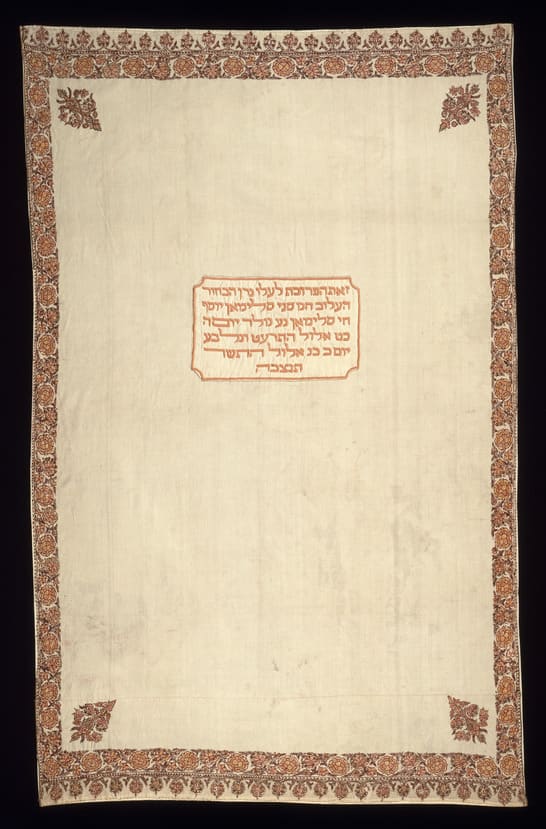 זאת הפרוכת לעלוי נרן הבחור
העלוב המנסי סלימאן יוסף
חי סלימאן נע נולד יום ה
כט אלול התרעט ונלבע
יום כ בנ אלול התשד
תנצבה